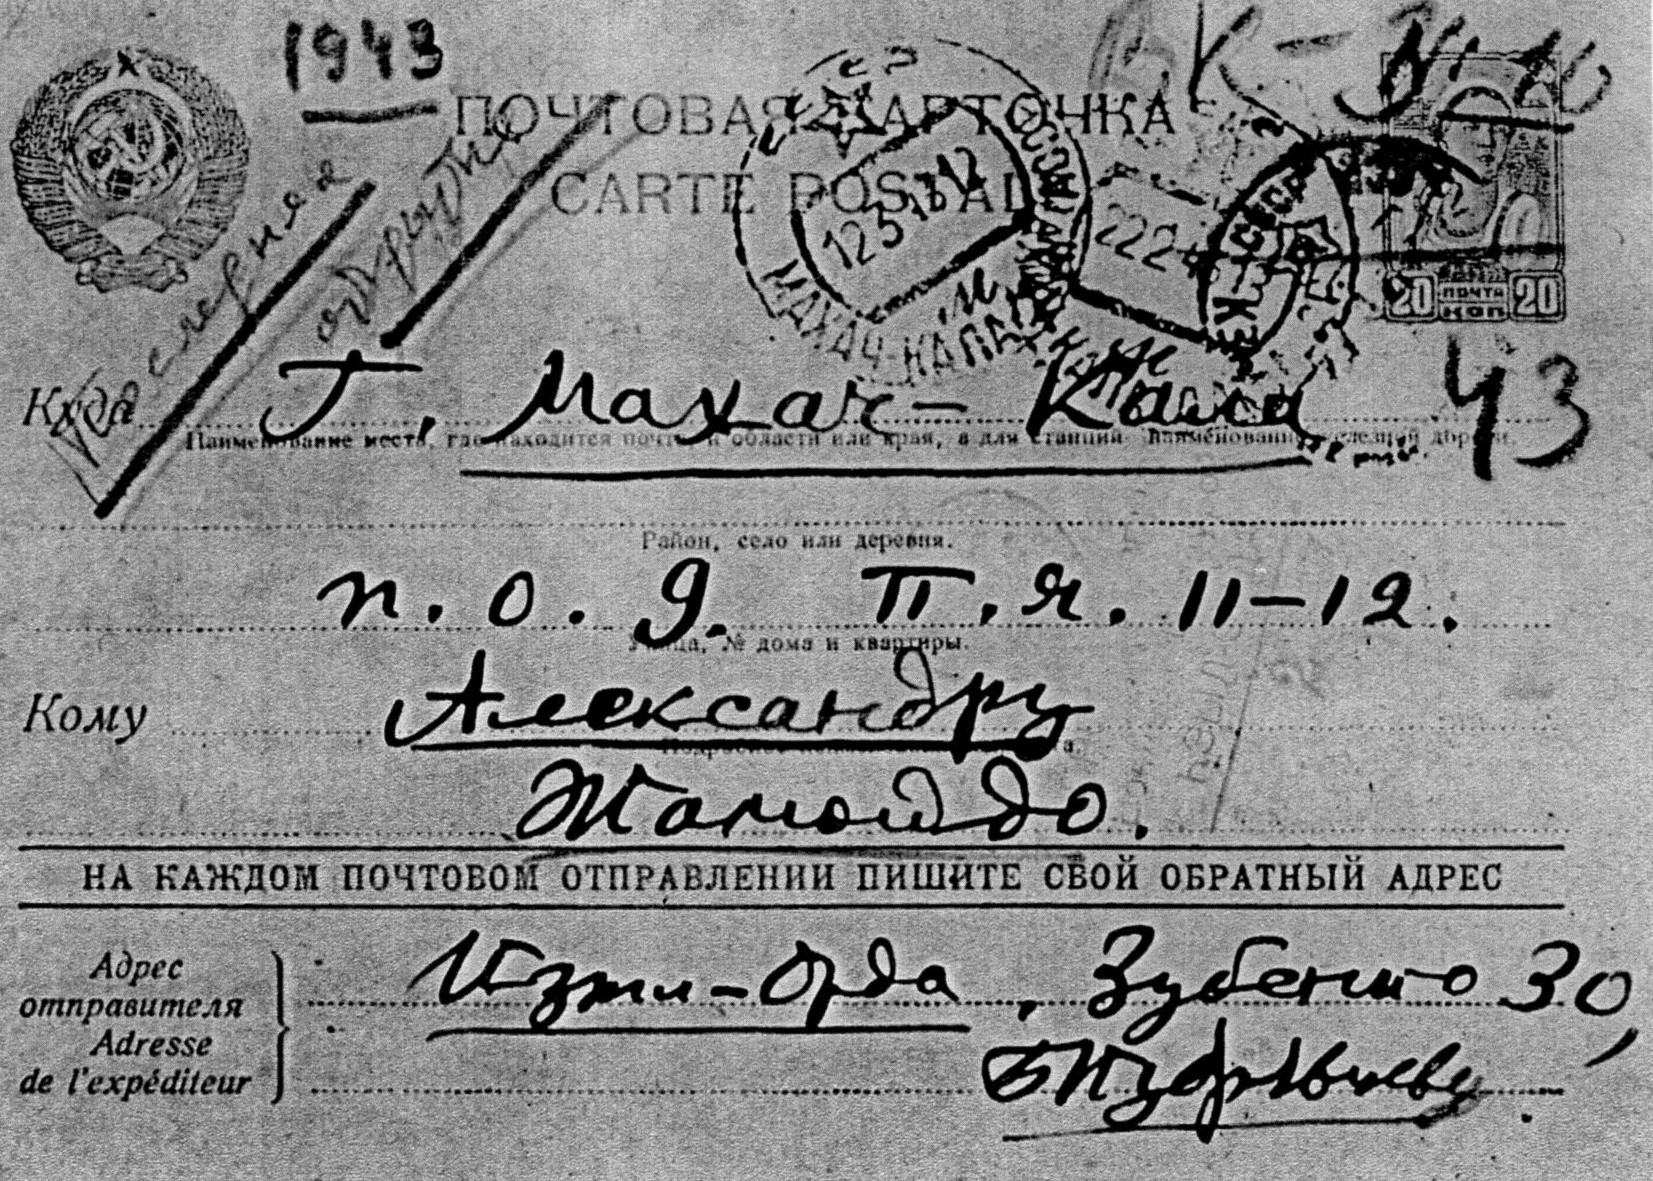 1943
ПОЧТОВАЯ КАРТОЧКА
CARTE POSTALE
СССР
МАХАЧ-КАЛА
12 5
222
20 ПОЧТА 20
КОП
43
Куда Г. Махач-Кала
Наименование места, где находится почта, и области или края, а для станций наименование железной дороги.
Район, село или деревня.
п. о. 9. П. Я. 11-12.
Улица, № дома и квартиры.
Кому Александру
НА КАЖДОМ ПОЧТОВОМ ОТПРАВЛЕНИИ ПИШИТЕ СВОЙ ОБРАТНЫЙ АДРЕС
Адрес
отправителя
Adresse
de l'expéditeur
Кзыл-Орда, Зубенко 30,